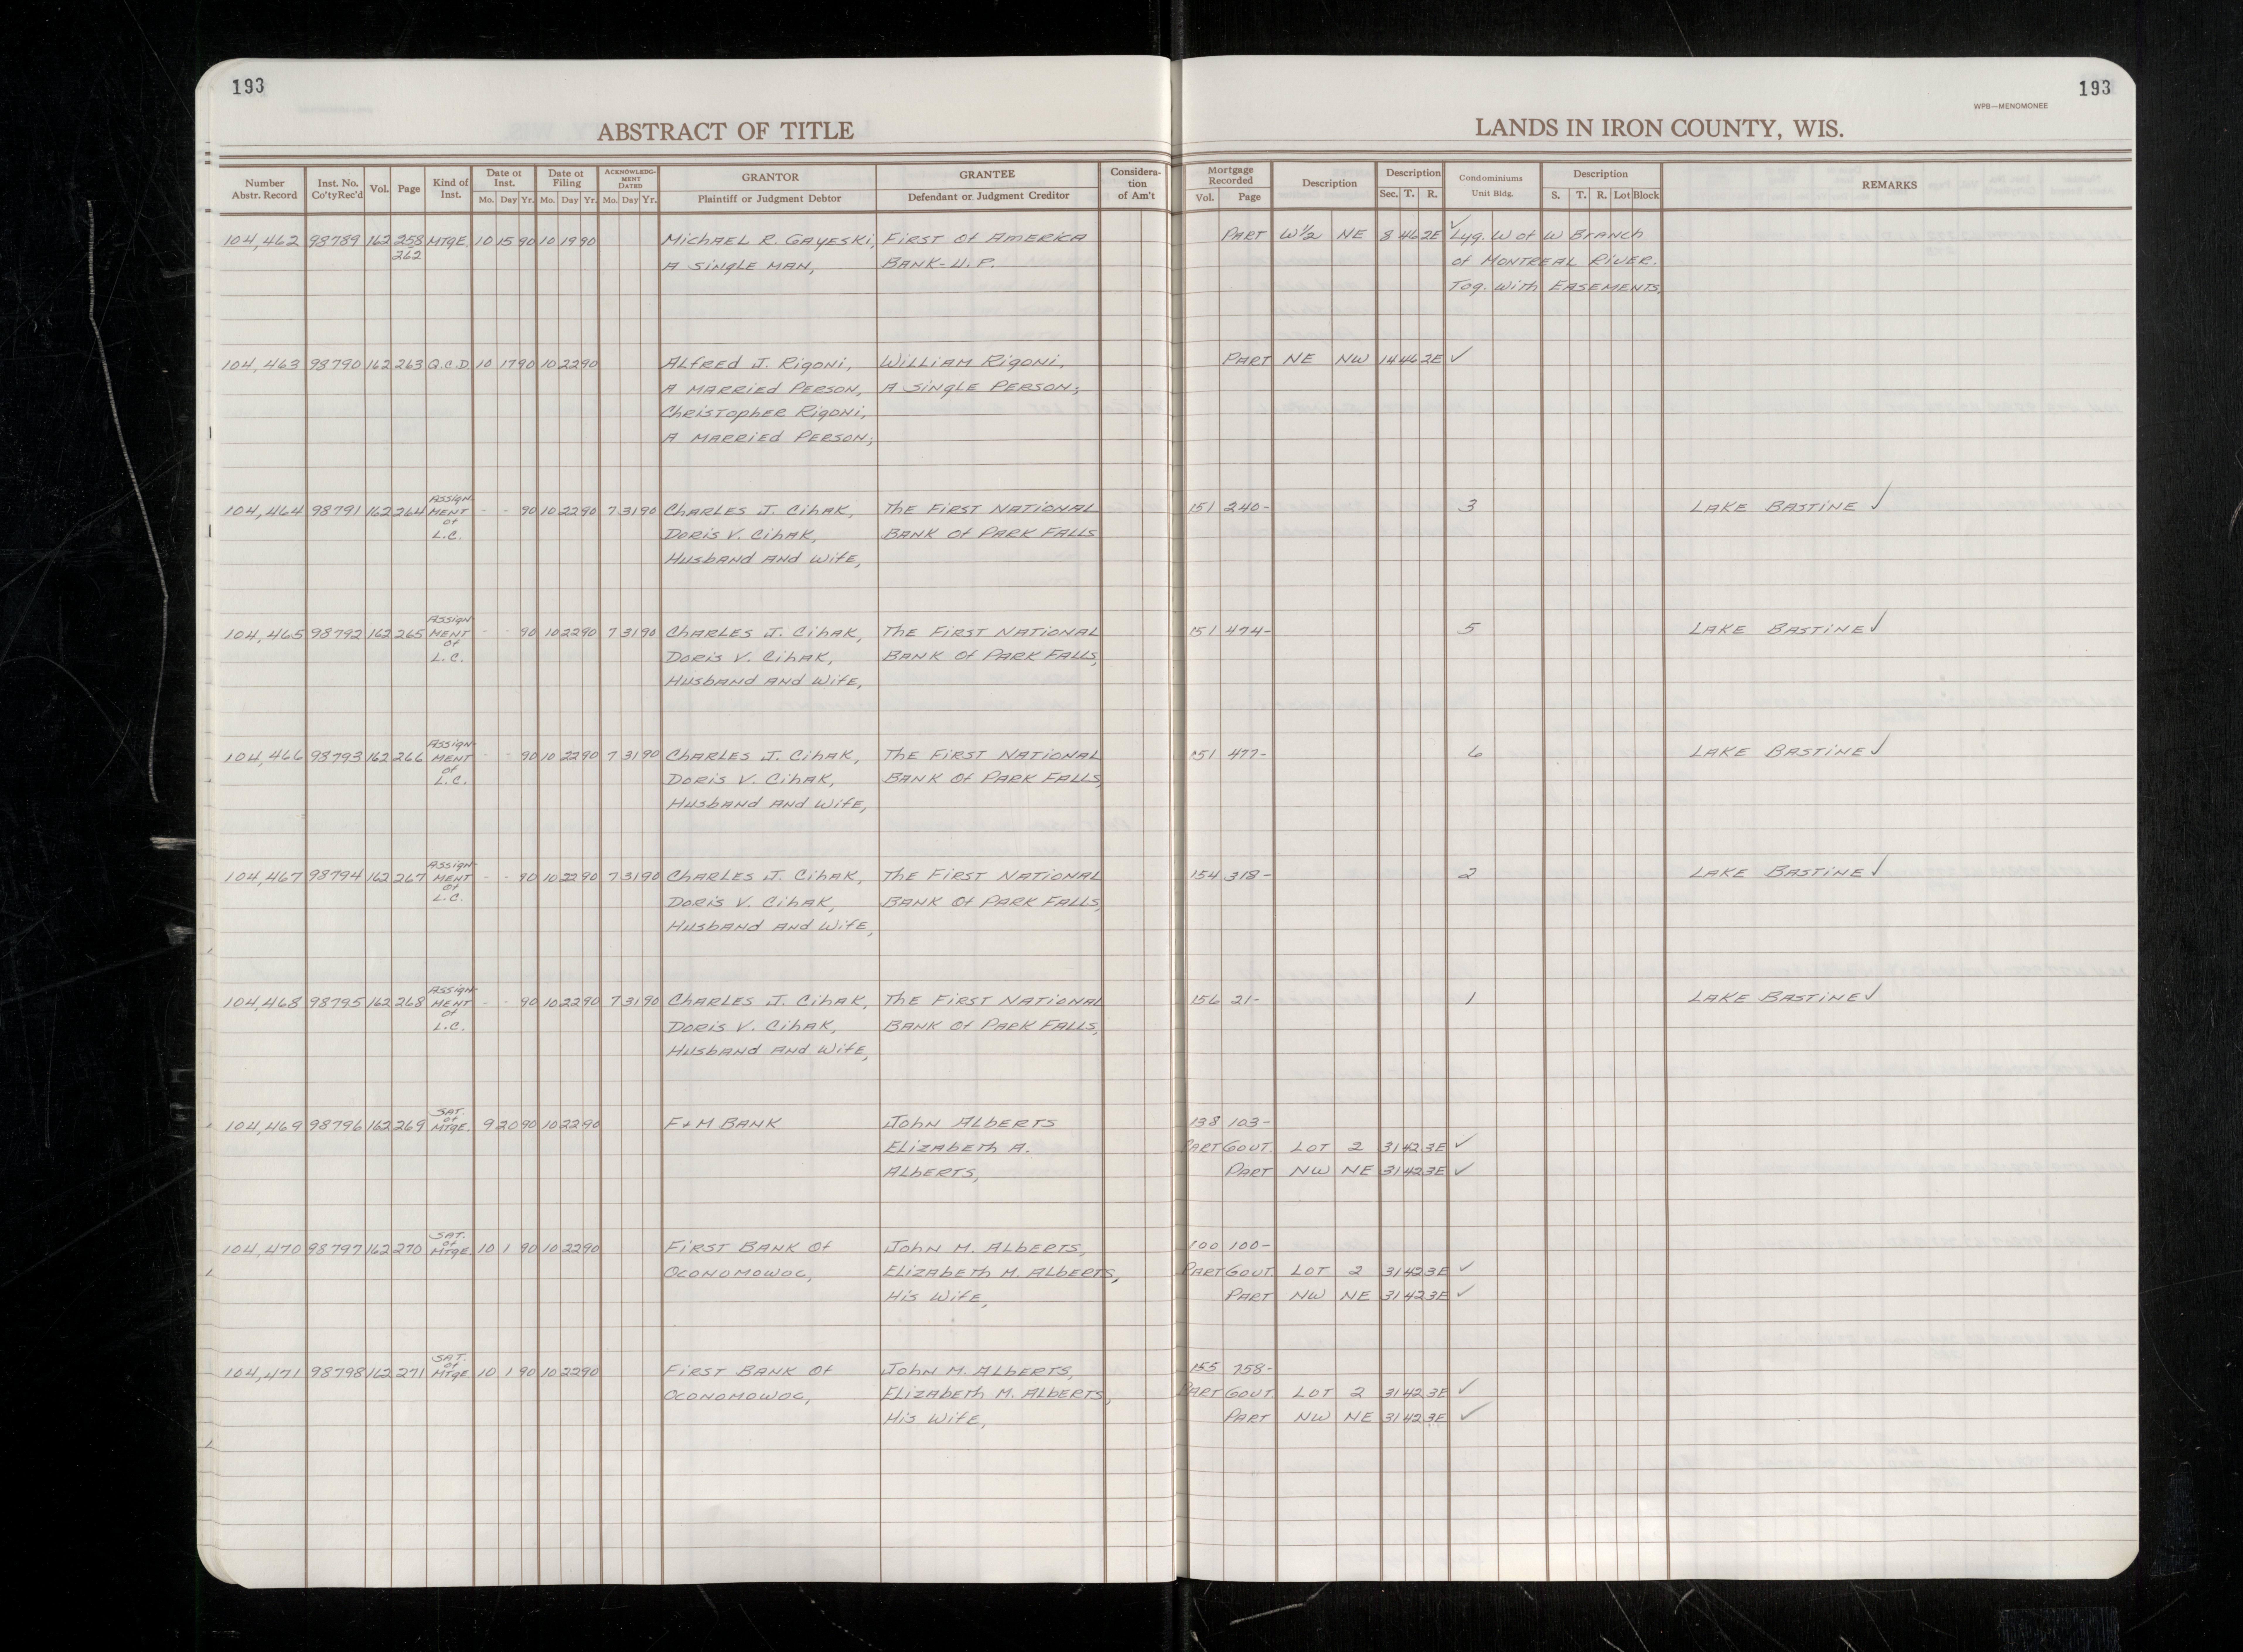 193
193
WPB—MENOMONEE
ABSTRACT OF TITLE
LANDS IN IRON COUNTY, WIS.
Number Abstr. Record | Inst. No. Co'ty Rec'd | Vol. | Page | Kind of Inst. | Date of Inst. Mo. Day Yr. | Date of Filing Mo. Day Yr. | ACKNOWLEDG-MENT DATED Mo. Day Yr. | GRANTOR Plaintiff or Judgment Debtor | GRANTEE Defendant or Judgment Creditor | Considera-tion of Am't | Mortgage Recorded Vol. Page | Description | Description Sec. T. R. | Condominiums Unit Bldg. | Description S. T. R. Lot Block | REMARKS
104,462 98789 162 258 MTGE. 10 15 90 10 19 90 Michael R. Gayeski, First of America PART W½ NE 8 46 2E ✓ Lyg. W of W Branch
262 A Single Man, Bank-U.P. of Montreal River.
Tog. With Easements,
104,463 98790 162 263 Q.C.D. 10 17 90 10 22 90 Alfred J. Rigoni, William Rigoni, PART NE NW 14 46 2E ✓
A Married Person, A Single Person;
Christopher Rigoni,
A Married Person;
104,464 98791 162 264 Assign-ment of L.C. - - 90 10 22 90 7 31 90 Charles J. Cihak, The First National 151 240- 3 Lake Bastine ✓
Doris V. Cihak, Bank of Park Falls
Husband and Wife,
104,465 98792 162 265 Assign-ment of L.C. - - 90 10 22 90 7 31 90 Charles J. Cihak, The First National 151 474- 5 Lake Bastine ✓
Doris V. Cihak, Bank of Park Falls,
Husband and Wife,
104,466 98793 162 266 Assign-ment of L.C. - - 90 10 22 90 7 31 90 Charles J. Cihak, The First National 151 477- 6 Lake Bastine ✓
Doris V. Cihak, Bank of Park Falls,
Husband and Wife,
104,467 98794 162 267 Assign-ment of L.C. - - 90 10 22 90 7 31 90 Charles J. Cihak, The First National 154 318- 2 Lake Bastine ✓
Doris V. Cihak, Bank of Park Falls,
Husband and Wife,
104,468 98795 162 268 Assign-ment of L.C. - - 90 10 22 90 7 31 90 Charles J. Cihak, The First National 156 21- 1 Lake Bastine ✓
Doris V. Cihak, Bank of Park Falls,
Husband and Wife,
104,469 98796 162 269 Sat. of Mtge. 9 20 90 10 22 90 F & M Bank John Alberts 138 103-
Elizabeth A. Part Govt. Lot 2 31 42 3E ✓
Alberts, Part NW NE 31 42 3E ✓
104,470 98797 162 270 Sat. of Mtge. 10 1 90 10 22 90 First Bank of John M. Alberts, 100 100-
Oconomowoc, Elizabeth M. Alberts, Part Govt. Lot 2 31 42 3E ✓
His Wife, Part NW NE 31 42 3E ✓
104,471 98798 162 271 Sat. of Mtge. 10 1 90 10 22 90 First Bank of John M. Alberts, 155 758-
Oconomowoc, Elizabeth M. Alberts, Part Govt. Lot 2 31 42 3E ✓
His Wife, Part NW NE 31 42 3E ✓